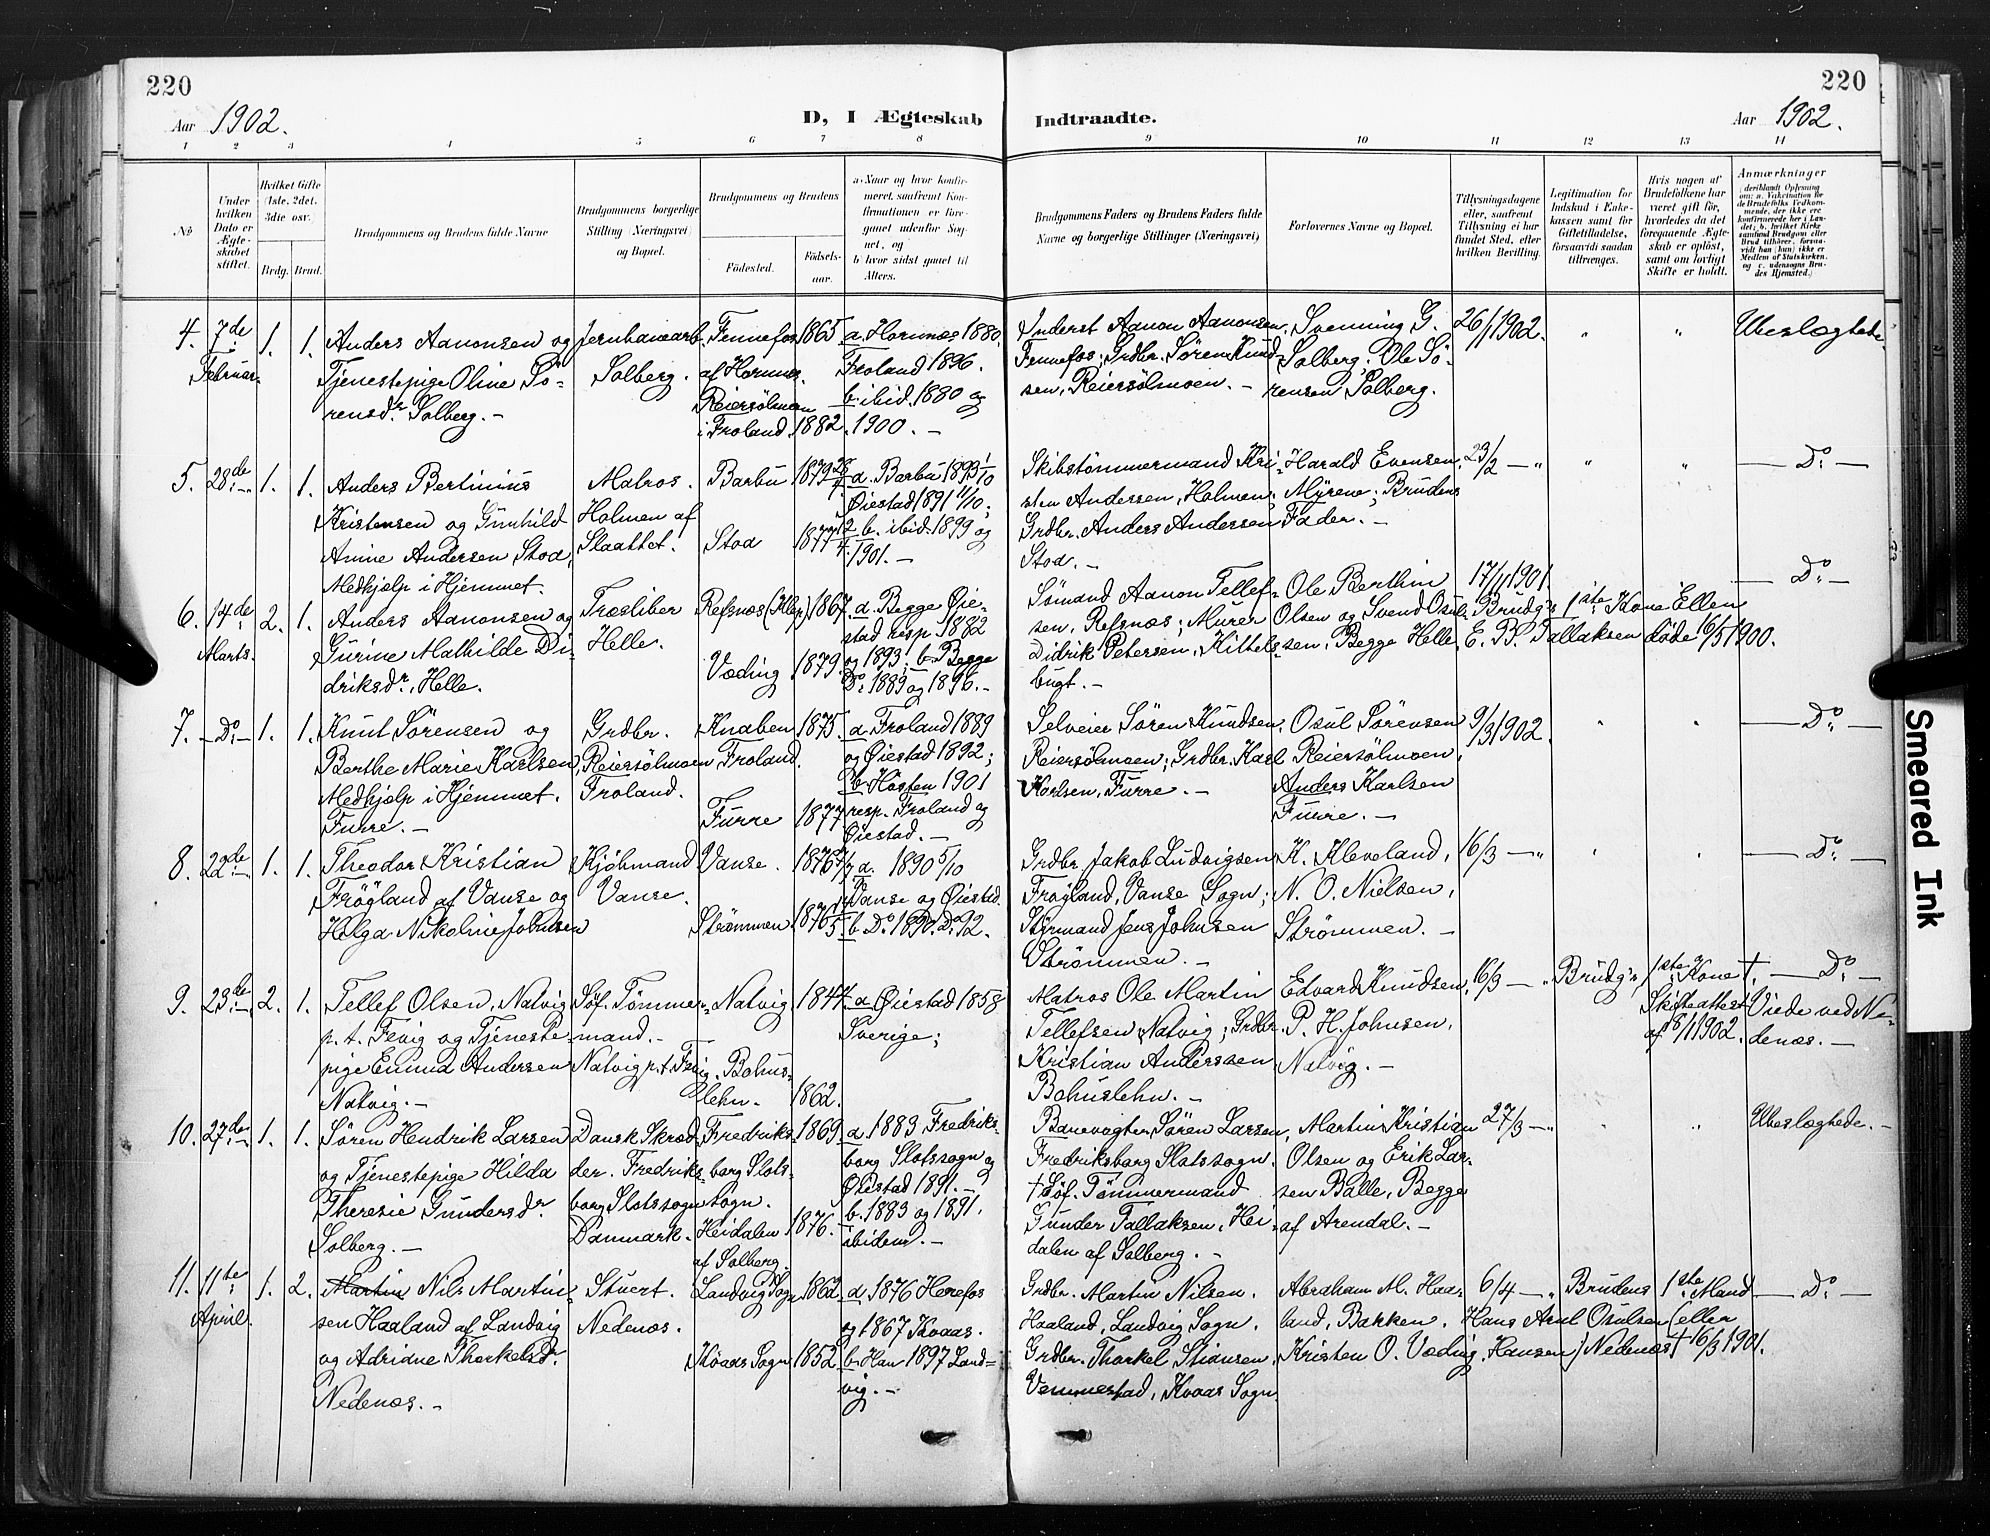 220
220
Aar 1902.
D, I Ægteskab Indtraadte.
Aar 1902.
1 2 3 4 5 6 7 8 9 10 11 12 13 14
No
Under hvilken Dato er Ægteskabet stiftet.
Hvilket Gifte (1ste, 2det, 3die osv.)
Brdg. Brud.
Brudgommens og Brudens fulde Navne
Brudgommens borgerlige Stilling (Næringsvei) og Bopæl.
Brudgommens og Brudens
Fødested.
Fødselsaar.
a. Naar og hvor konfirmeret, saafremt Konfirmationen er foregaaet udenfor Sognet, og
b. hvor sidst gaaet til Alters.
Brudgommens Faders og Brudens Faders fulde Navne og borgerlige Stillinger (Næringsvei)
Forlovernes Navne og Bopæl.
Tillysningsdagene eller, saafremt Tillysning ei har fundet Sted, efter hvilken Bevilling.
Legitimation for Indskud i Enkekassen samt for Giftetilladelse, forsaavidt saadan tiltrænges.
Hvis nogen af Brudefolkene har været gift før, hvorledes da det foregaaende Ægteskab er opløst, samt om lovligt Skifte er holdt.
Anmærkninger
(deriblandt Oplysning om: a. Vakcination for de Brudefolks Vedkommende, der ikke ere konfirmerede her i Landet; b. hvilket Kirkesamfund Brudgom eller Brud tilhører, forsaavidt han (hun) ikke er Medlem af Statskirken, og c. udensogns Brudes Hjemsted.)
4. 7de Februar. 1. 1.
Anders Aanonsen og
Tjenestepige Oline Sö-
rensdr. Solberg. –
Jernbanearb.
Solberg.
Fennefos
af Hornnes.
Reiersölmoen
i Froland.
1865
1882.
a. Hornnes 1880,
Froland 1896.
b. ibid. 1880 og
1900. –
Inderst Aanon Aanonsen,
Fennefos; Grdbr. Søren Knud-
sen, Reiersölmoen. –
Svenning G.
Solberg; Ole Sö-
rensen Solberg.
26/1 1902.
" "
Ubeslægtede.
5. 28de – 1. 1.
Anders Bertinius
Kristensen og Gunhild
Anine Andersen Stoa,
Medhjælp i Hjemmet.
Matros.
Holmen af
Slaattet.
Barbu
Stoa
1879 28/7
1877 12/4
a. Barbu 1893 1/10
Øiestad 1891 11/10;
b. ibid. 1899 og
1901. –
Skibstömmermand Kri-
sten Andersen, Holmen;
Grdbr. Anders Andersen
Stoa. –
Harald Evensen,
Myrene; Brudens
Fader. –
23/2 – "
" "
– Do –
6. 14de Marts. 2. 1.
Anders Aanonsen og
Gurine Mathilde Di-
driksdr., Helle.
Træsliber
Helle.
Refsnæs (Klep)
Væding
1867.
1879.
a. Begge Øie-
stad resp. 1882
og 1893; b. Begge
Do. 1889 og 1896. –
Sömand Aanon Tellef-
sen, Refsnæs; Murer
Didrik Petersen, Kittels-
bugt. –
Ole Berthin
Olsen og Svend Osul-
sen, Begge Helle.
17/11 1901.
Brudg's 1ste Kone Ellen
E. B. Tallaksen døde 16/5 1900.
– Do –
7. – Do – 1. 1.
Knut Sørensen og
Berthe Marie Karlsen,
Medhjælp i Hjemmet.
Furre. –
Grdbr.
Reiersölmoen
Froland.
Knaben
Froland.
Furre
1875.
1877
a. Froland 1889
og Øiestad 1892;
b. Hösten 1901
resp. Froland og
Øiestad. –
Selveier Sören Knudsen,
Reiersölmoen; Grdbr. Karl
Karlsen, Furre. –
Osul Sørensen
Reiersölmoen,
Anders Karlsen
Furre. –
9/3 1902.
" "
– Do –
8. 22de – 1. 1.
Theodor Kristian
Frögland af Vanse og
Helga Nikoline Johnsen
Kjöbmand
Vanse.
Vanse.
Strömmen
1876
1876
a. 1890 5/10
Vanse og Øiestad.
b. Do. 1890. Do. 92.
Grdbr. Jakob Ludvigsen
Frögland, Vanse Sogn;
Styrmand Jens Johnsen
Strömmen. –
K. Kleveland,
N. O. Nielsen,
Strömmen. –
16/3 – "
" "
– Do –
9. 23de – 2. 1.
Tellef Olsen, Natvig
p. t. Fevig og Tjeneste-
pige Emma Andersen
Natvig. –
Söf. Tömmer-
mand. –
Natvig p. t. Fevig.
Natvig
Bohus-
lehn.
1844
1862.
a. Øiestad 1858
Sverige;
Matros Ole Martin
Tellefsen Natvig; Grdbr.
Kristian Anderssen
Bohuslehn. –
Edvard Knudsen,
P. H. Johnsen,
Natvig. –
16/3 – "
Brudg's 1ste Kone †.
Skifteattest
af 8/1 1902.
– Do –
Viede ved Ne-
denæs. –
10. 27de – 1. 1.
Sören Hendrik Larsen
og Tjenestepige Hilda
Theresie Gundersdr.
Solberg. –
Dansk Skræd-
der. Fredriks-
borg Slotssogn
Danmark.
Fredriks-
borg Slots-
sogn.
Heidalen
af Solberg.
1869.
1876.
a. 1883 Fredriks-
borg Slotssogn og
Øiestad 1891. –
b. 1883 og 1891.
ibidem. –
Banevogter Sören Larsen,
Fredriksborg Slotssogn.
† Söf. Tömmermand
Gunder Tallaksen, Hei-
dalen af Solberg. –
Martin Kristian
Olsen og Erik Lar-
sen Balle, Begge
af Arendal. –
27/3 – "
" "
Ubeslægtede. –
11. 11te April. 1. 2.
Martin Nils Martin-
sen Haaland af Landvig
og Adriane Thorkelsdr.
Nedenæs. –
Stuert.
Nedenæs.
Landvig Sogn
Kvaas Sogn
1862.
1852.
a. 1876 Herefos
og 1867 Kvaas.
b. Han 1897 Land-
vig. –
Grdbr. Martin Nilsen,
Haaland, Landvig Sogn.
Grdbr. Thorkel Stiansen,
Vemmestad, Kvaas Sogn.
Abraham M. Haa-
land, Bakken.
Kristen O. Væding.
6/4 – "
Brudens 1ste Mand
Hans Axel Osulsen (eller
Hansen) Nedenæs † 16/3 1901.
– Do –
Smeared Ink